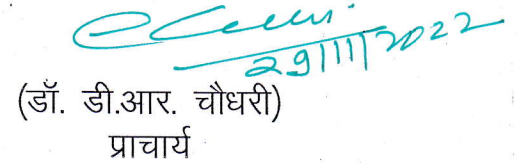 29/11/2022
(डॉ. डी.आर. चौधरी)
प्राचार्य